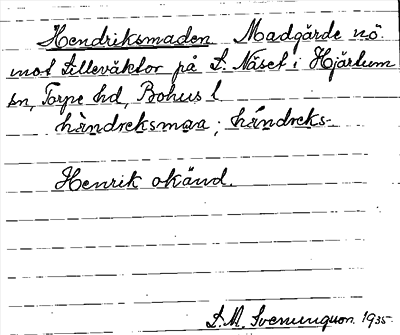 Hendriksmaden Madgärde nö.
mot Lilleväktor på L. Näset i Hjärtum
sn, Torpe hd, Bohus l
hàndreksmaa; hándreks-
Henrik okänd.
S.M. Svenungson 1935.